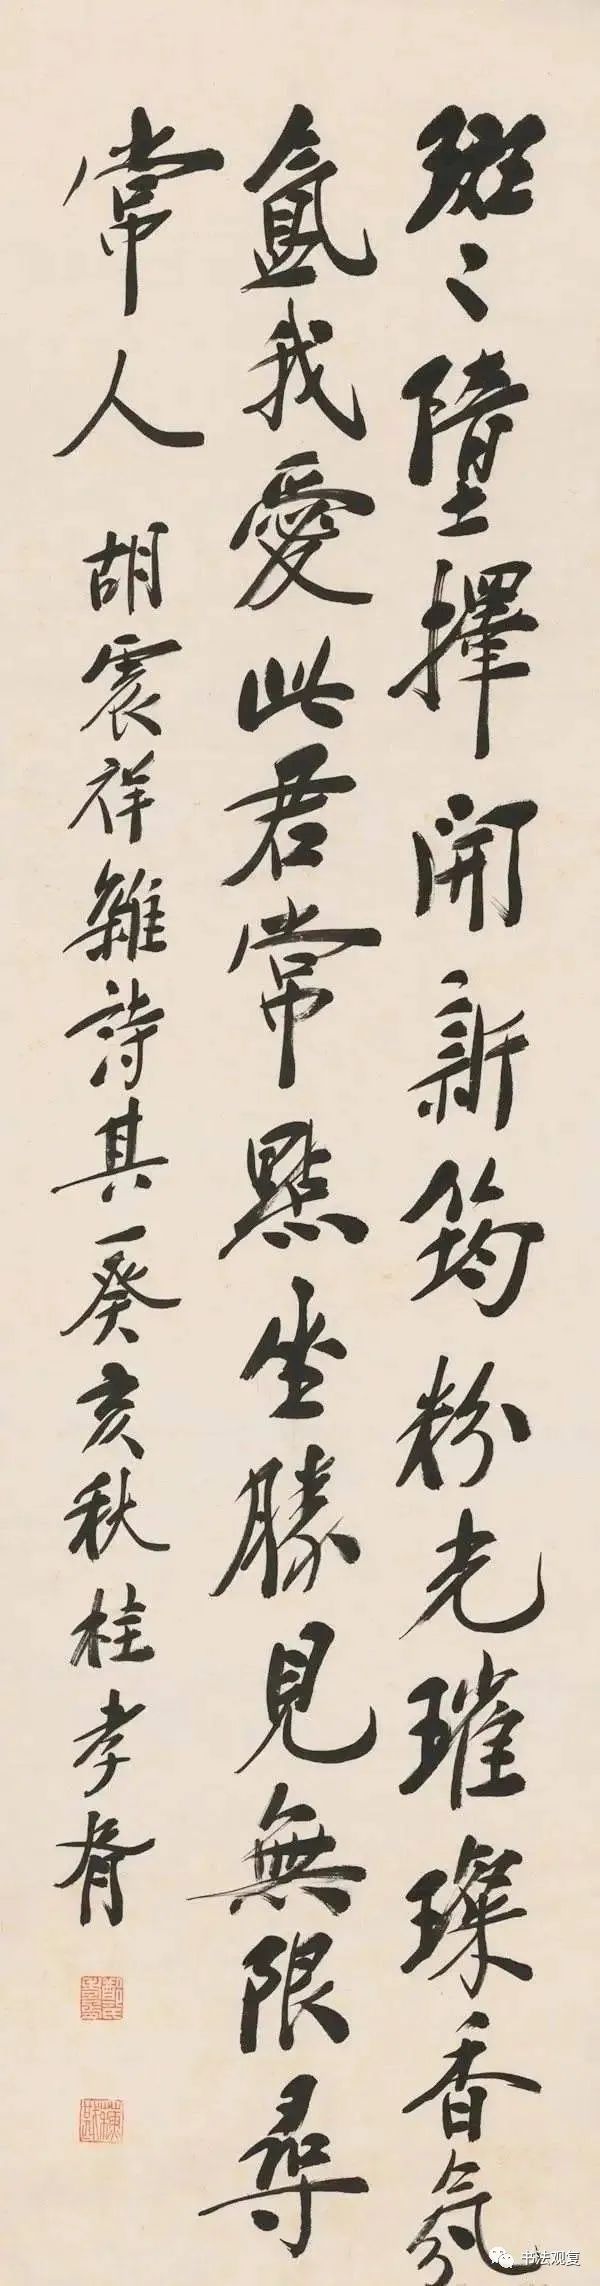 斑〻墮擇開新筠粉光璀璨香氛
氳我愛此君常默坐勝見無限尋
常人
胡震祥雜詩其一癸亥秋柱孝胥
书法观复